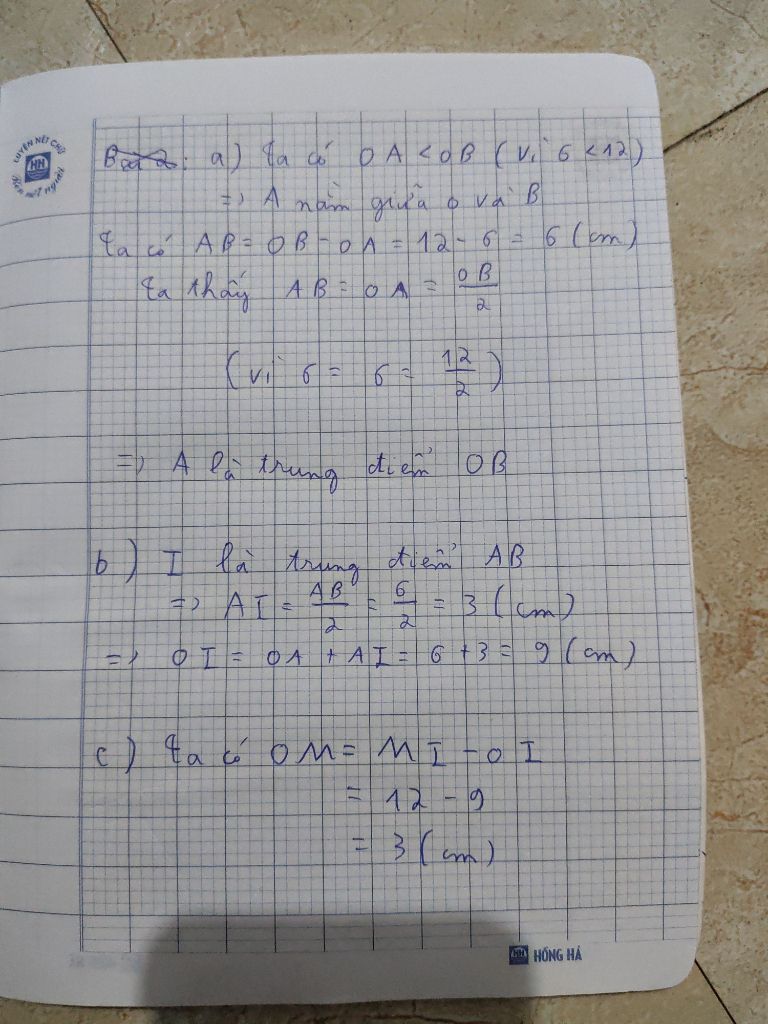 LUYỆN NÉT CHỮ
HH
Rèn nết người
Bài 2: a) Ta có OA < OB (vì 6 < 12)
=> A nằm giữa O và B
Ta có AB = OB - OA = 12 - 6 = 6 (cm)
Ta thấy AB = OA = OB/2
(vì 6 = 6 = 12/2)
=> A là trung điểm OB
b) I là trung điểm AB
=> AI = AB/2 = 6/2 = 3 (cm)
=> OI = OA + AI = 6 + 3 = 9 (cm)
c) Ta có OM = MI - OI
= 12 - 9
= 3 (cm)
HH HỒNG HÀ